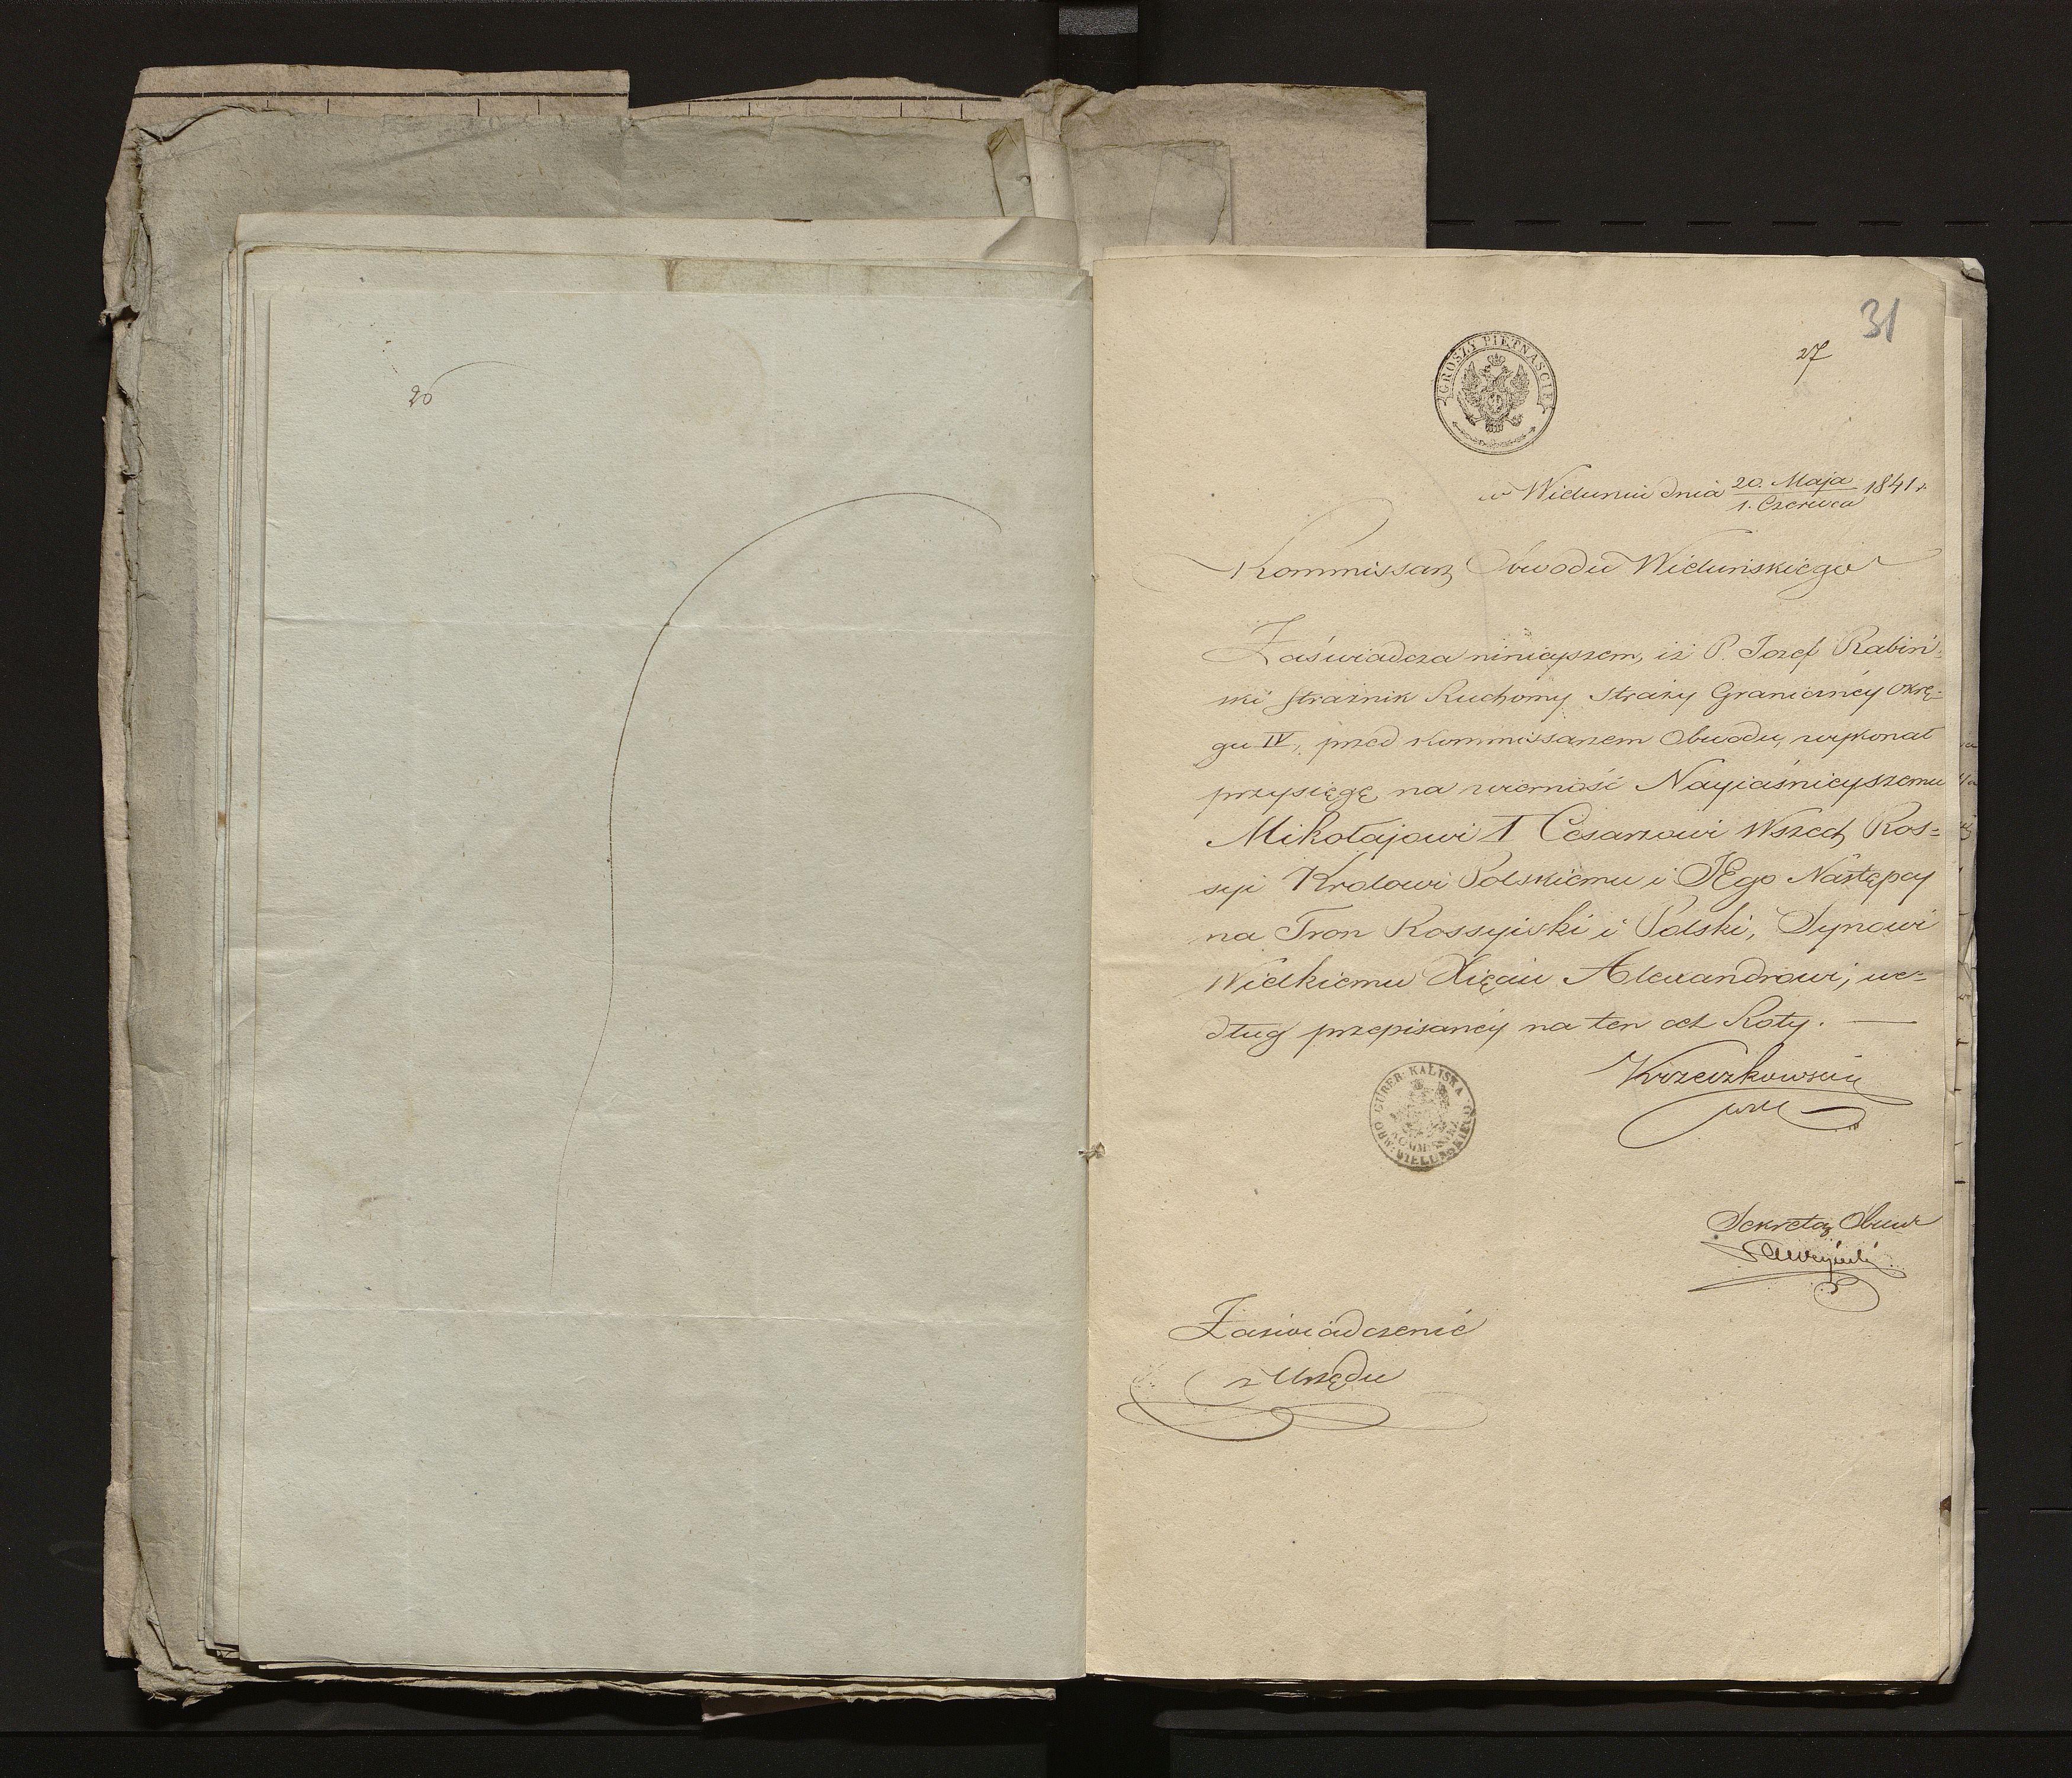 20
31
27
GROSZY PIĘTNAŚCIE
w Wieluniu dnia 20. Maja 1841 r
1. Czerwca
Kommissarz Obwodu Wieluńskiego
Zaświadcza ninieyszem, iż P. Jozef Rabiń=
ski Strażnik Ruchomy Straży Graniczney Okrę=
gu IV, przed Kommissarzem Obwodu, wykonał
przysięgę na wierność Nayiaśnieyszemu
Mikołajowi I Cesarzowi Wszech Ros=
syi Krolowi Polskiemu i JEgo Następcy
na Tron Rossyiski i Polski, Synowi
Wielkiemu Xięciu Alexandrowi, we=
dług przepisaney na ten cel Roty. —
GUBER: KALISKA
KOMMISSARZ
OBW: WIELUŃSKIEGO
Krzeczkowski
Sekretarz Obwu
Zaświadczenie
z Urzędu